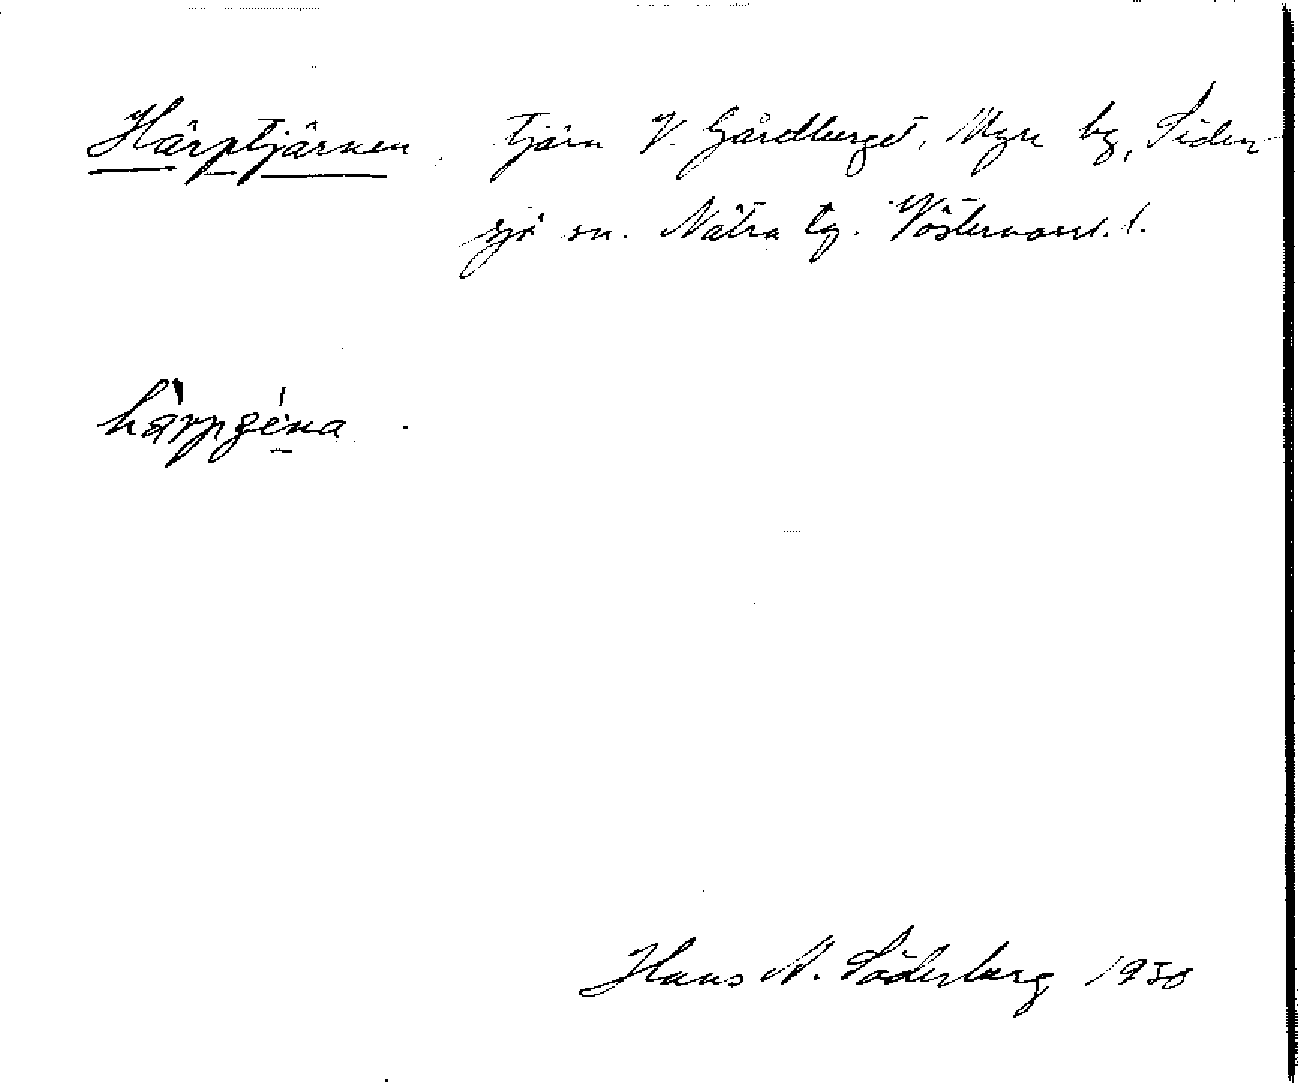 Härptjärnen. Tjärn V. Gårdberget, Myre by, Siden-
sjö sn. Nätra tg. Västernorrl. l.
härpgèna.
Hans N. Söderberg 1930